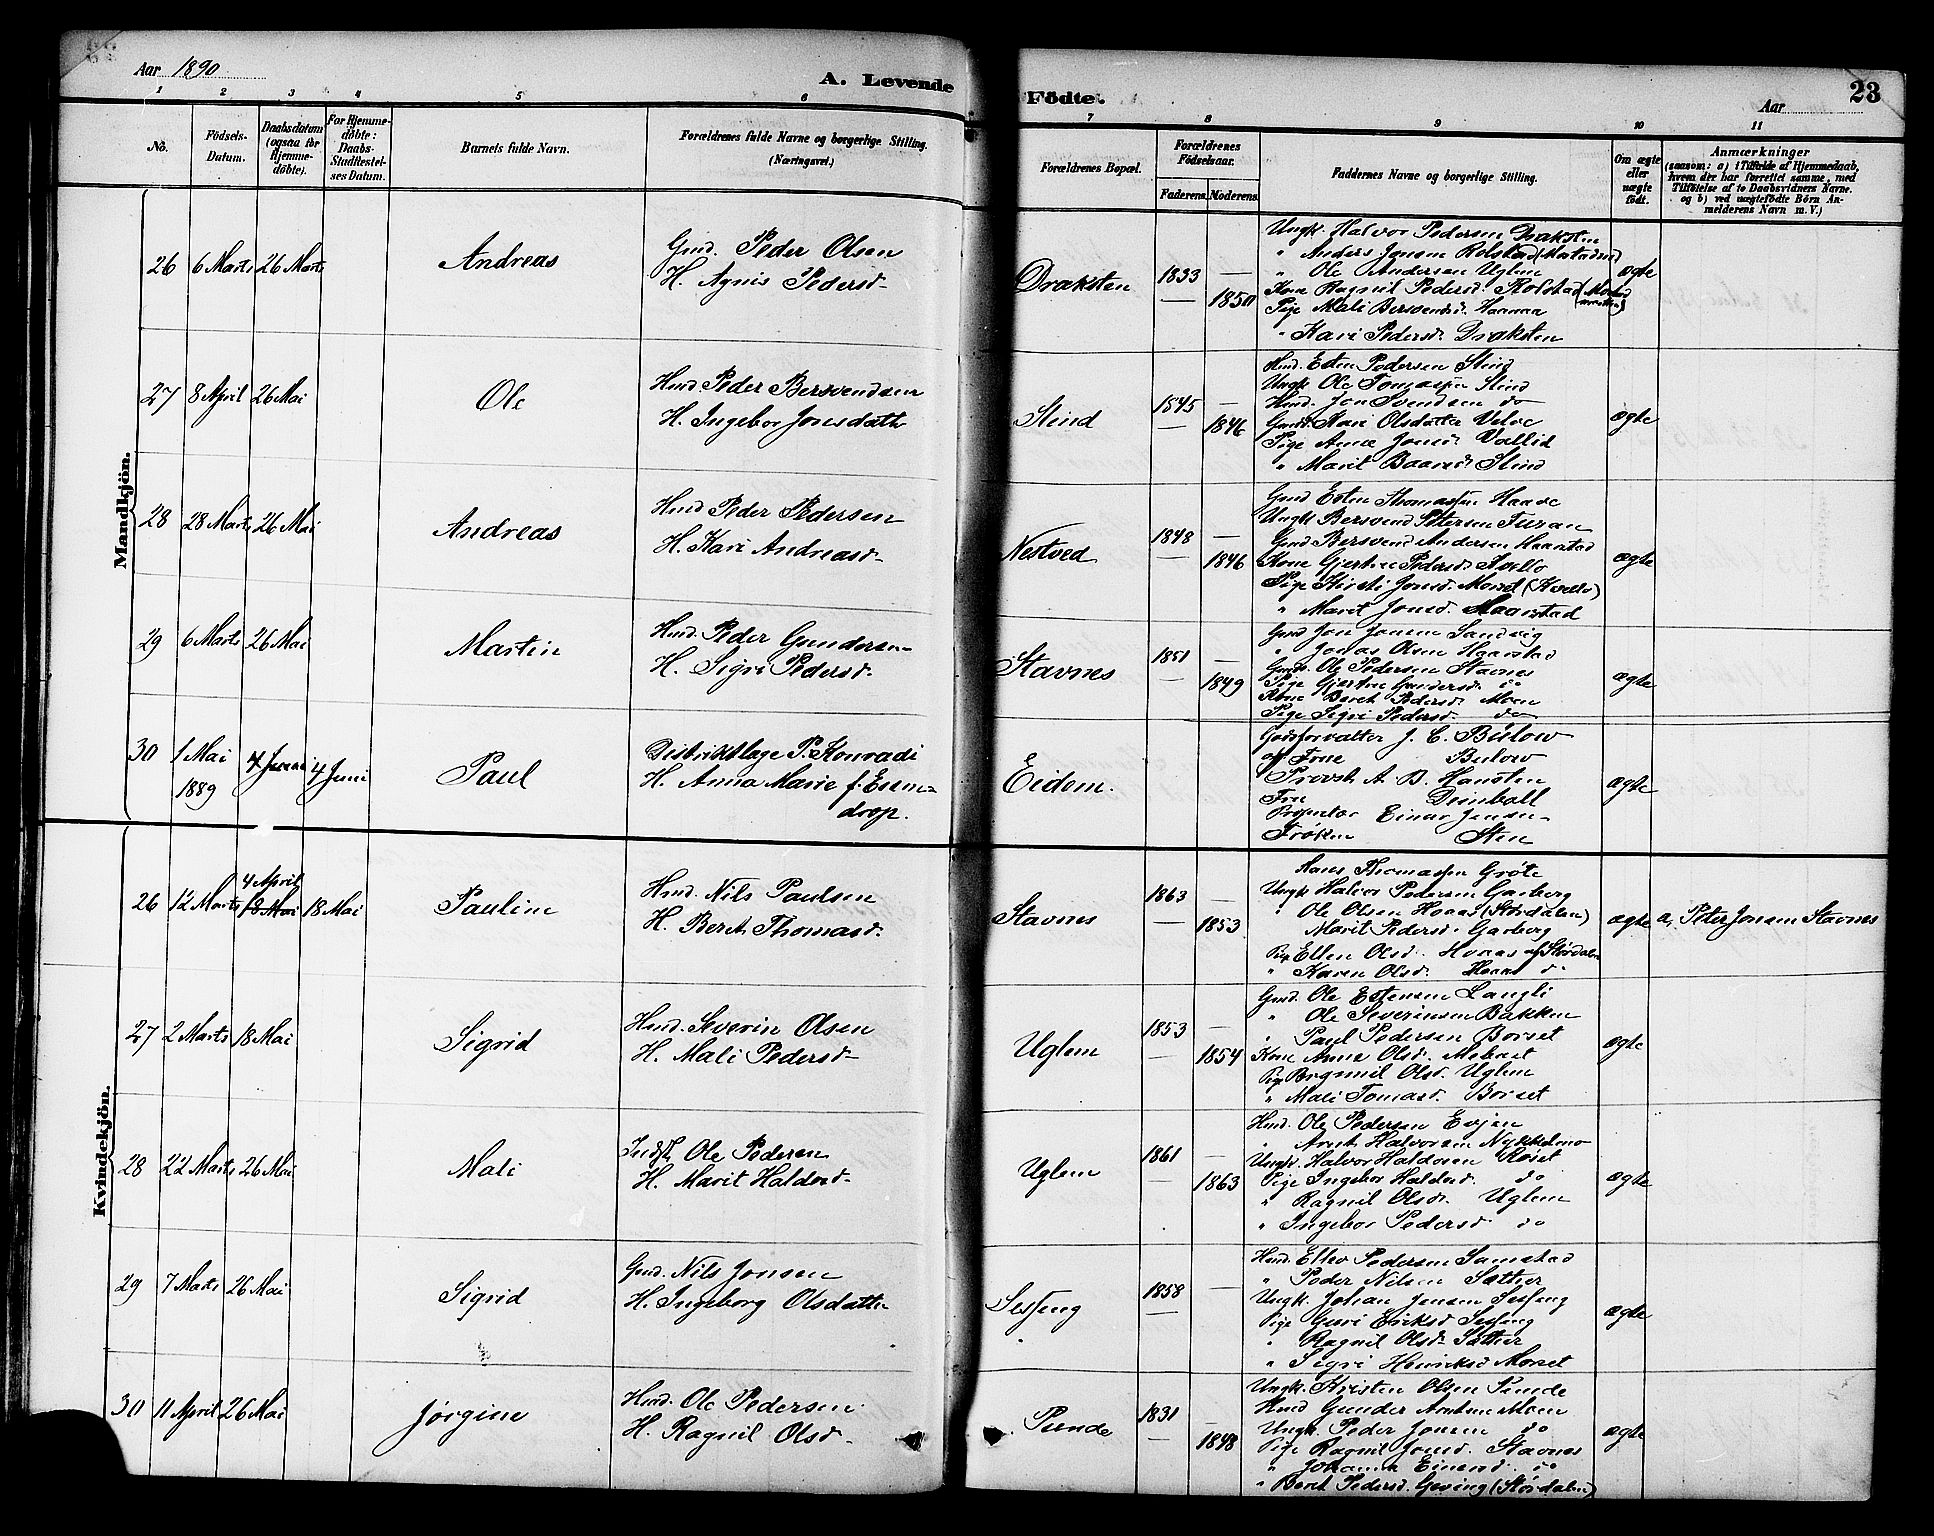 Aar 1890
A. Levende Födte.
Aar 23
1 2 3 4 5 6 7 8 9 10 11
No.
Födsels-Datum.
Daabsdatum (ogsaa for Hjemme-döbte).
For Hjemme-döbte: Daabs-Stadfestel-ses Datum.
Barnets fulde Navn.
Forældrenes fulde Navne og borgerlige Stilling. (Næringsvei.)
Forældrenes Bopæl.
Forældrenes Födselsaar.
Faderens. Moderens.
Faddernes Navne og borgerlige Stilling.
Om ægte eller uægte födt.
Anmærkninger
(saasom: a) i Tilfælde af Hjemmedaab, hvem der har forrettet samme, med Tilföielse af to Daabsvidners Navne. og b) ved uægtefödte Börn An-melderens Navn m. V.)
Mandkjön.
26 6 Marts 26 Marts Andreas
Gmd. Peder Olsen
H. Agnis Pedersd.
Draksten 1833 — — 1850
Ungk. Halvor Pedersen Draksten
" Anders Jonsen Rolstad
" Ole Andersen Uglem
Kone Ragnil Pedersd.
Pige Mali Bersvendsd.
" Kari Pedersd. Draksten
ægte
27 8 April 26 Mai Ole
Hmd. Peder Bersvendsen
H. Ingebor Jonsdatter
Slind 1845 — — 1846
Hmd. Esten Pedersen Slind
Ungk. Ole Tomassen Slind
Hmd. Jon Svendsen do
Gmd. Kari Olsdatter Velve
Pige Anne Jonsd. Vallid
" Marit Baarsd. Slind
ægte
28 28 Marts 26 Mai Andreas
Hmd Peder Pedersen
H. Kari Andreasd.
Nestved 1848 — — 1846
Gmd Esten Thomassen Haave
Ungk Bersvend Pettersen Furan
Gmd Bersvend Andersen Haarstad
Kone Gjertrue Pedersd. Kvello
Pige Kirsti Jonsd. Morset (Kvello)
" Marit Jonsd. Haarstad
ægte
29 6 Marts 26 Mai Martin
Hmd. Peder Gundersen
H. Sigri Pedersd.
Stavnes 1851 — — 1849
Gmd Jon Jonsen Sandvig
" Jonas Olsen Haarstad
Ungk. Ole Pedersen Stavnes
Pige Gjertrue Gundersd. do
Kone Beret Pedersd. Moen
Pige Sigri Pedersd. do
ægte
30 1 Mai 1889 4 Juni 4 Juni Paul
Distriktlæge P. Konradi
H. Anna Marie f. Esen-
drop.
Eidem.
Godsforvalter J. C. Bülow
og Frue Bülow
Provst A. B. Hansten
Fru Deinboll
Proprietær Einar Jensen
Frøken Sten
ægte
Kvindekjön.
26 12 Marts 4 April 18 Mai 18 Mai Pauline
Hmd. Nils Paulsen
H. Beret Thomasd.
Stavnes 1863 — — 1853
Hans Thomassen Grøte
Ungk Halvor Pedersen Garberg
" Ole Olsen Hoaas (Størdalen)
Marit Pedersd. Garberg
Pige Ellen Olsd. Hoaas af Størdalen
" Karen Olsd. Hoaas do
ægte a, Peter Jonsen Stavnes
27 2 Marts 18 Mai Sigrid
Hmd. Severin Olsen
H. Mali Pedersd.
Uglem 1853 — — 1854
Gmd. Ole Estensen Langli
" Ole Severinsen Bakken
" Paul Pedersen Borset
Kone Anne Olsd. Mebust
Pige Ragnil Olsd. Uglem
" Mali Tomasd. Borset
ægte
28 22 Marts 26 Mai Mali
Indst. Ole Pedersen
H. Marit Haldosd.
Uglem 1861 — — 1863
Hmd. Ole Pedersen Evjen
" Arnt Halvorsen Nykkelmo
Ungk. Halvor Haldosen Røset
Pige Ingebor Haldosd. do
" Ragnil Olsd. Uglem
" Ingebor Pedersd. do
ægte
29 7 Marts 26 Mai Sigrid
Gmd. Nils Jonsen
H. Ingeborg Olsdatter
Sesseng 1858 — —
Hmd. Ellev Pedersen Samstad
" Peder Nilsen Sæther
Ungk. Johan Jensen Sesseng
Pige Guri Eriksd Sesseng
" Ragnil Olsd. Sæther
" Sigri Henriksd Morset
ægte
30 11 April 26 Mai Jørgine
Hmd. Ole Pedersen
H. Ragnil Olsd.
Punde 1831 — — 1848
Ungk. Kristen Olsen Punde
Hmd Gunder Arntsen Moen
Ungk. Peder Jonsen do
Pige Ragnil Jonsd. Stavnes
" Johanna Einersd. do
" Beret Pedersd. Geving (Størdalen)
ægte